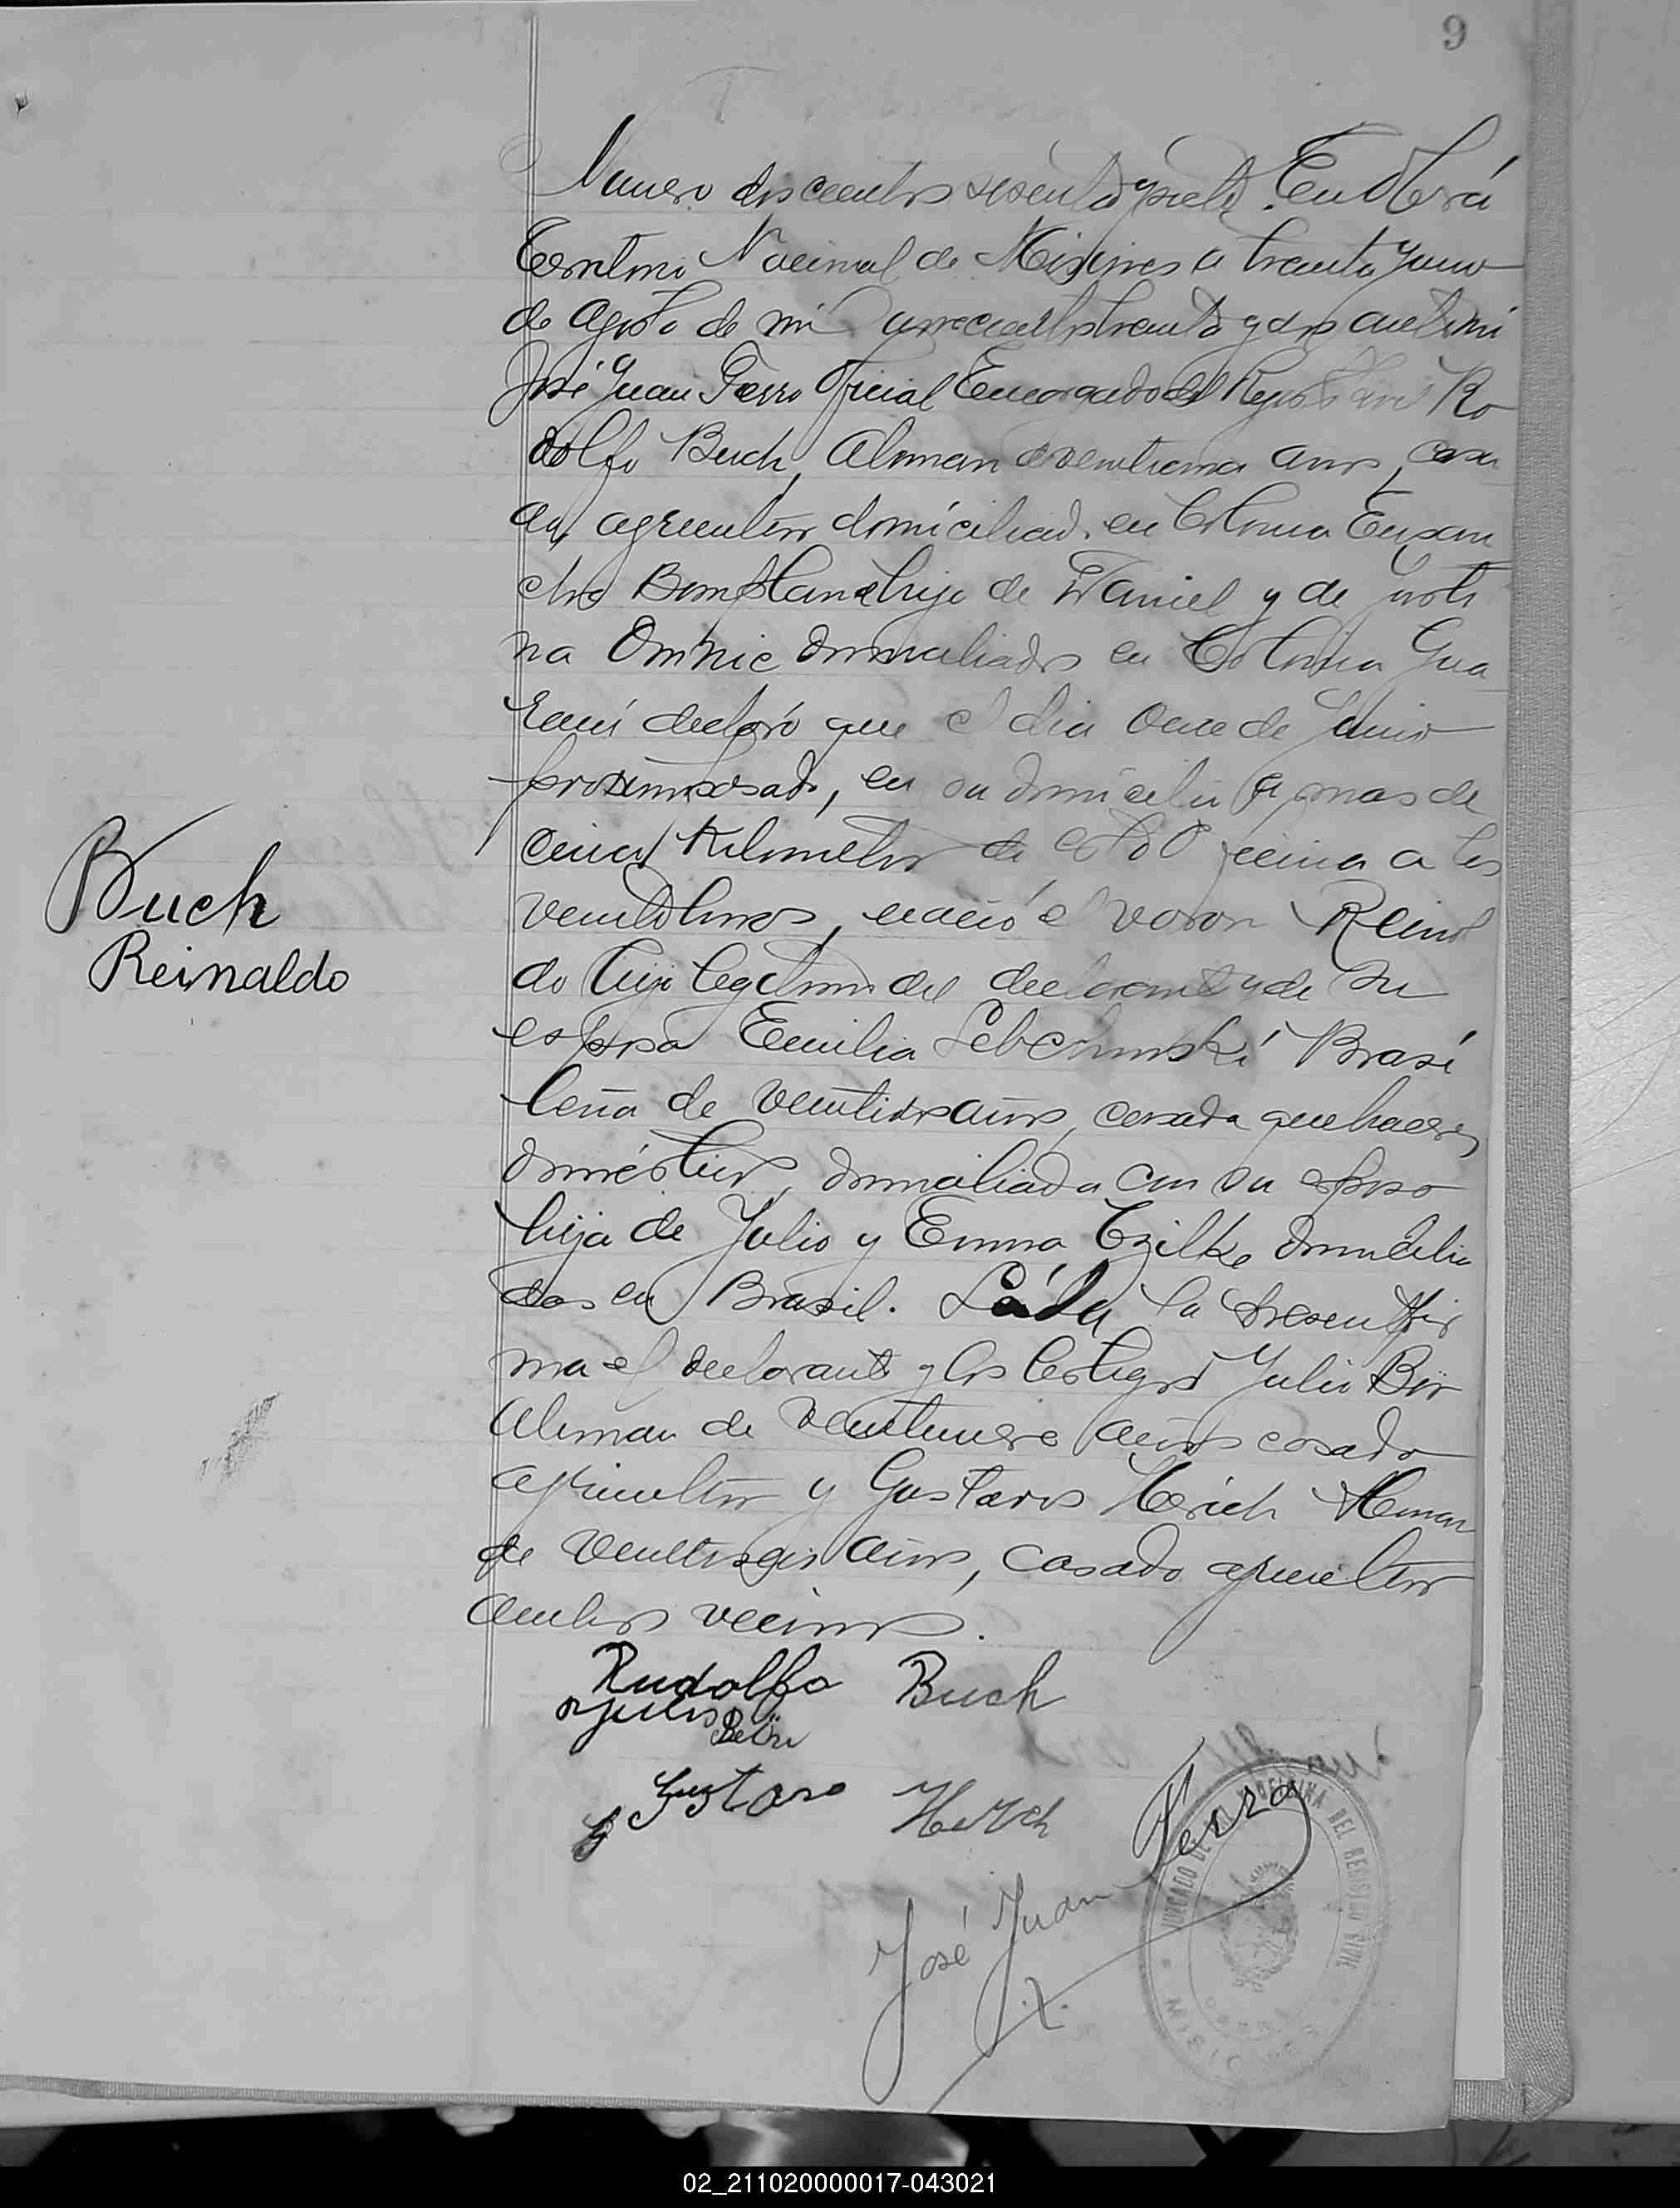 9
Numero doscientos sesenta y siete. En Oberá
Territorio Nacional de Misiones a treinta y uno
de agosto de mil novecientos treinta y dos ante mi
José Juan Ferro Oficial Encargado del Registro Civil Ro
dolfo Buch, Aleman de años, casa
do, agricultor domiciliado en Colonia Ensan
che Bompland hijo de Daniel y de Justi
na domiciliados en Colonia Gua
raní declaró que el dia once de Junio
proximo pasado, en su domicilio a mas de
cinco Kilometros de esta Oficina a las
horas, nació el varon Reinal
do hijo legitimo del declarante y de su
esposa Emilia Brasi
leña de veintidos años, casada quehaceres
domésticos, domiciliada con su esposo
hija de Julio y Emma domicilia
dos en Brasil. Leída la presente fir
ma el declarante y los testigos Julio
Aleman de veintinueve años casado
agricultor y Gustavo Herich Aleman
de veintiseis años, casado agricultor
ambos vecinos.
Buch
Reinaldo
Rudolfo Buch
Gustavo
José Juan Ferro
JUZGADO DE PAZ OFICINA DEL REGISTRO CIVIL
MISIONES
02_211020000017-043021